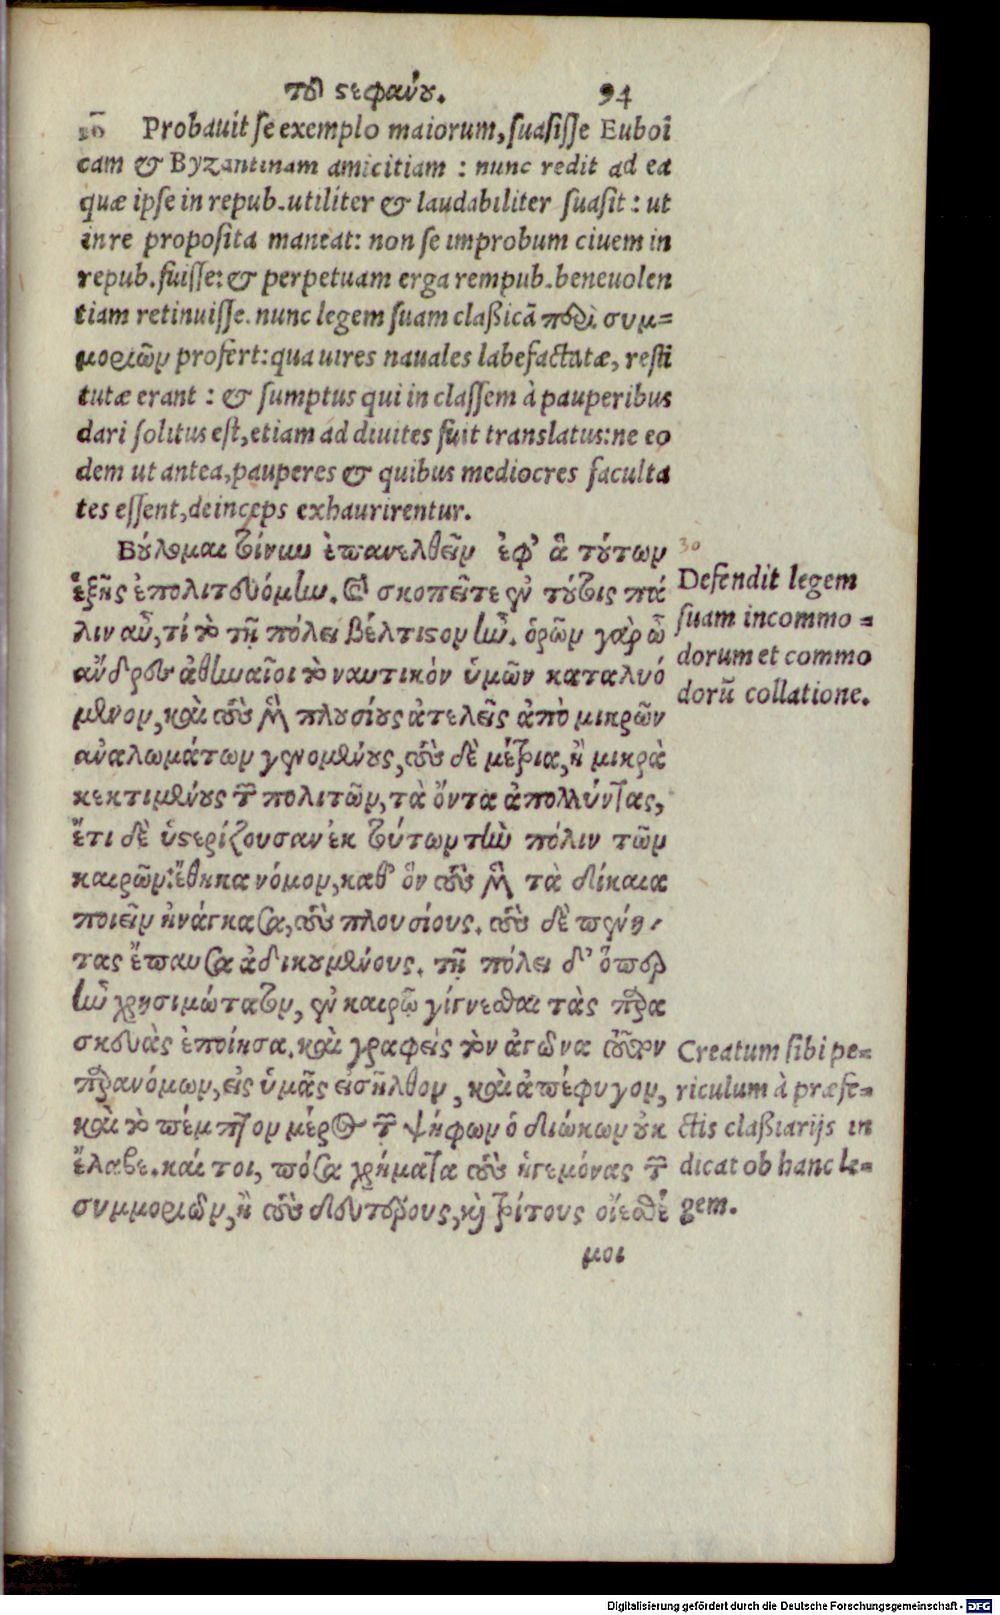 τοῦ στεφάνου. 94
Probauit se exemplo maiorum, suasisse Euboi
cam & Byzantinam amicitiam : nunc redit ad ea
quæ ipse in repub. utiliter & laudabiliter suasit : ut
in re proposita maneat: non se improbum ciuem in
repub. fuisse: & perpetuam erga rempub. beneuolen
tiam retinuisse. nunc legem suam claßicā περὶ συμ=
μοριῶν profert: qua uires nauales labefactatæ, resti
tutæ erant : & sumptus qui in classem à pauperibus
dari solitus est, etiam ad diuites fuit translatus: ne eo
dem ut antea, pauperes & quibus mediocres faculta
tes essent, deinceps exhaurirentur.
Βούλομαι τοίνυν ἐπανελθεῖν ἐφ’ ἃ τούτων
ἑξῆς ἐπολιτευόμην. καὶ σκοπεῖτε ἐν τούτοις πά
λιν αὖ, τί τὸ τῇ πόλει βέλτιστον ἦν. ὁρῶν γὰρ ὦ
ἄνδρες ἀθηναῖοι τὸ ναυτικὸν ὑμῶν καταλυό
μενον, καὶ τοὺς μὲν πλουσίους ἀτελεῖς ἀπὸ μικρῶν
ἀναλωμάτων γενομένους, τοὺς δὲ μέτρια, ἢ μικρὰ
κεκτιμένους τῶν πολιτῶν, τὰ ὄντα ἀπολλύντας,
ἔτι δὲ ὑστερίζουσαν ἐκ τούτων τὴν πόλιν τῶν
καιρῶν: ἔθηκα νόμον, καθ’ ὃν τοὺς μὲν τὰ δίκαια
ποιεῖν ἠνάγκασα, τοὺς πλουσίους. τοὺς δὲ πένη-
τας ἔπαυσα ἀδικουμένους. τῇ πόλει δ’ ὅπερ
ἦν χρησιμώτατον, ἐν καιρῷ γίγνεσθαι τὰς παρα
σκευὰς ἐποίησα. καὶ γραφεὶς τὸν ἀγῶνα τοῦτον
παρανόμων, εἰς ὑμᾶς εἰσῆλθον, καὶ ἀπέφυγον,
καὶ τὸ πέμπτον μέρος τῶν ψήφων ὁ διώκων οὐκ
ἔλαβε. καί τοι, πόσα χρήματα τοὺς ἡγεμόνας τῶν
συμμοριῶν, ἢ τοὺς δευτέρους, καὶ τρίτους οἴεσθέ
μοι
30
Defendit legem
suam incommo=
dorum et commo
dorū collatione.
Creatum sibi pe=
riculum à præfe=
ctis claßiarijs in
dicat ob hanc le=
gem.
Digitalisierung gefördert durch die Deutsche Forschungsgemeinschaft - DFG